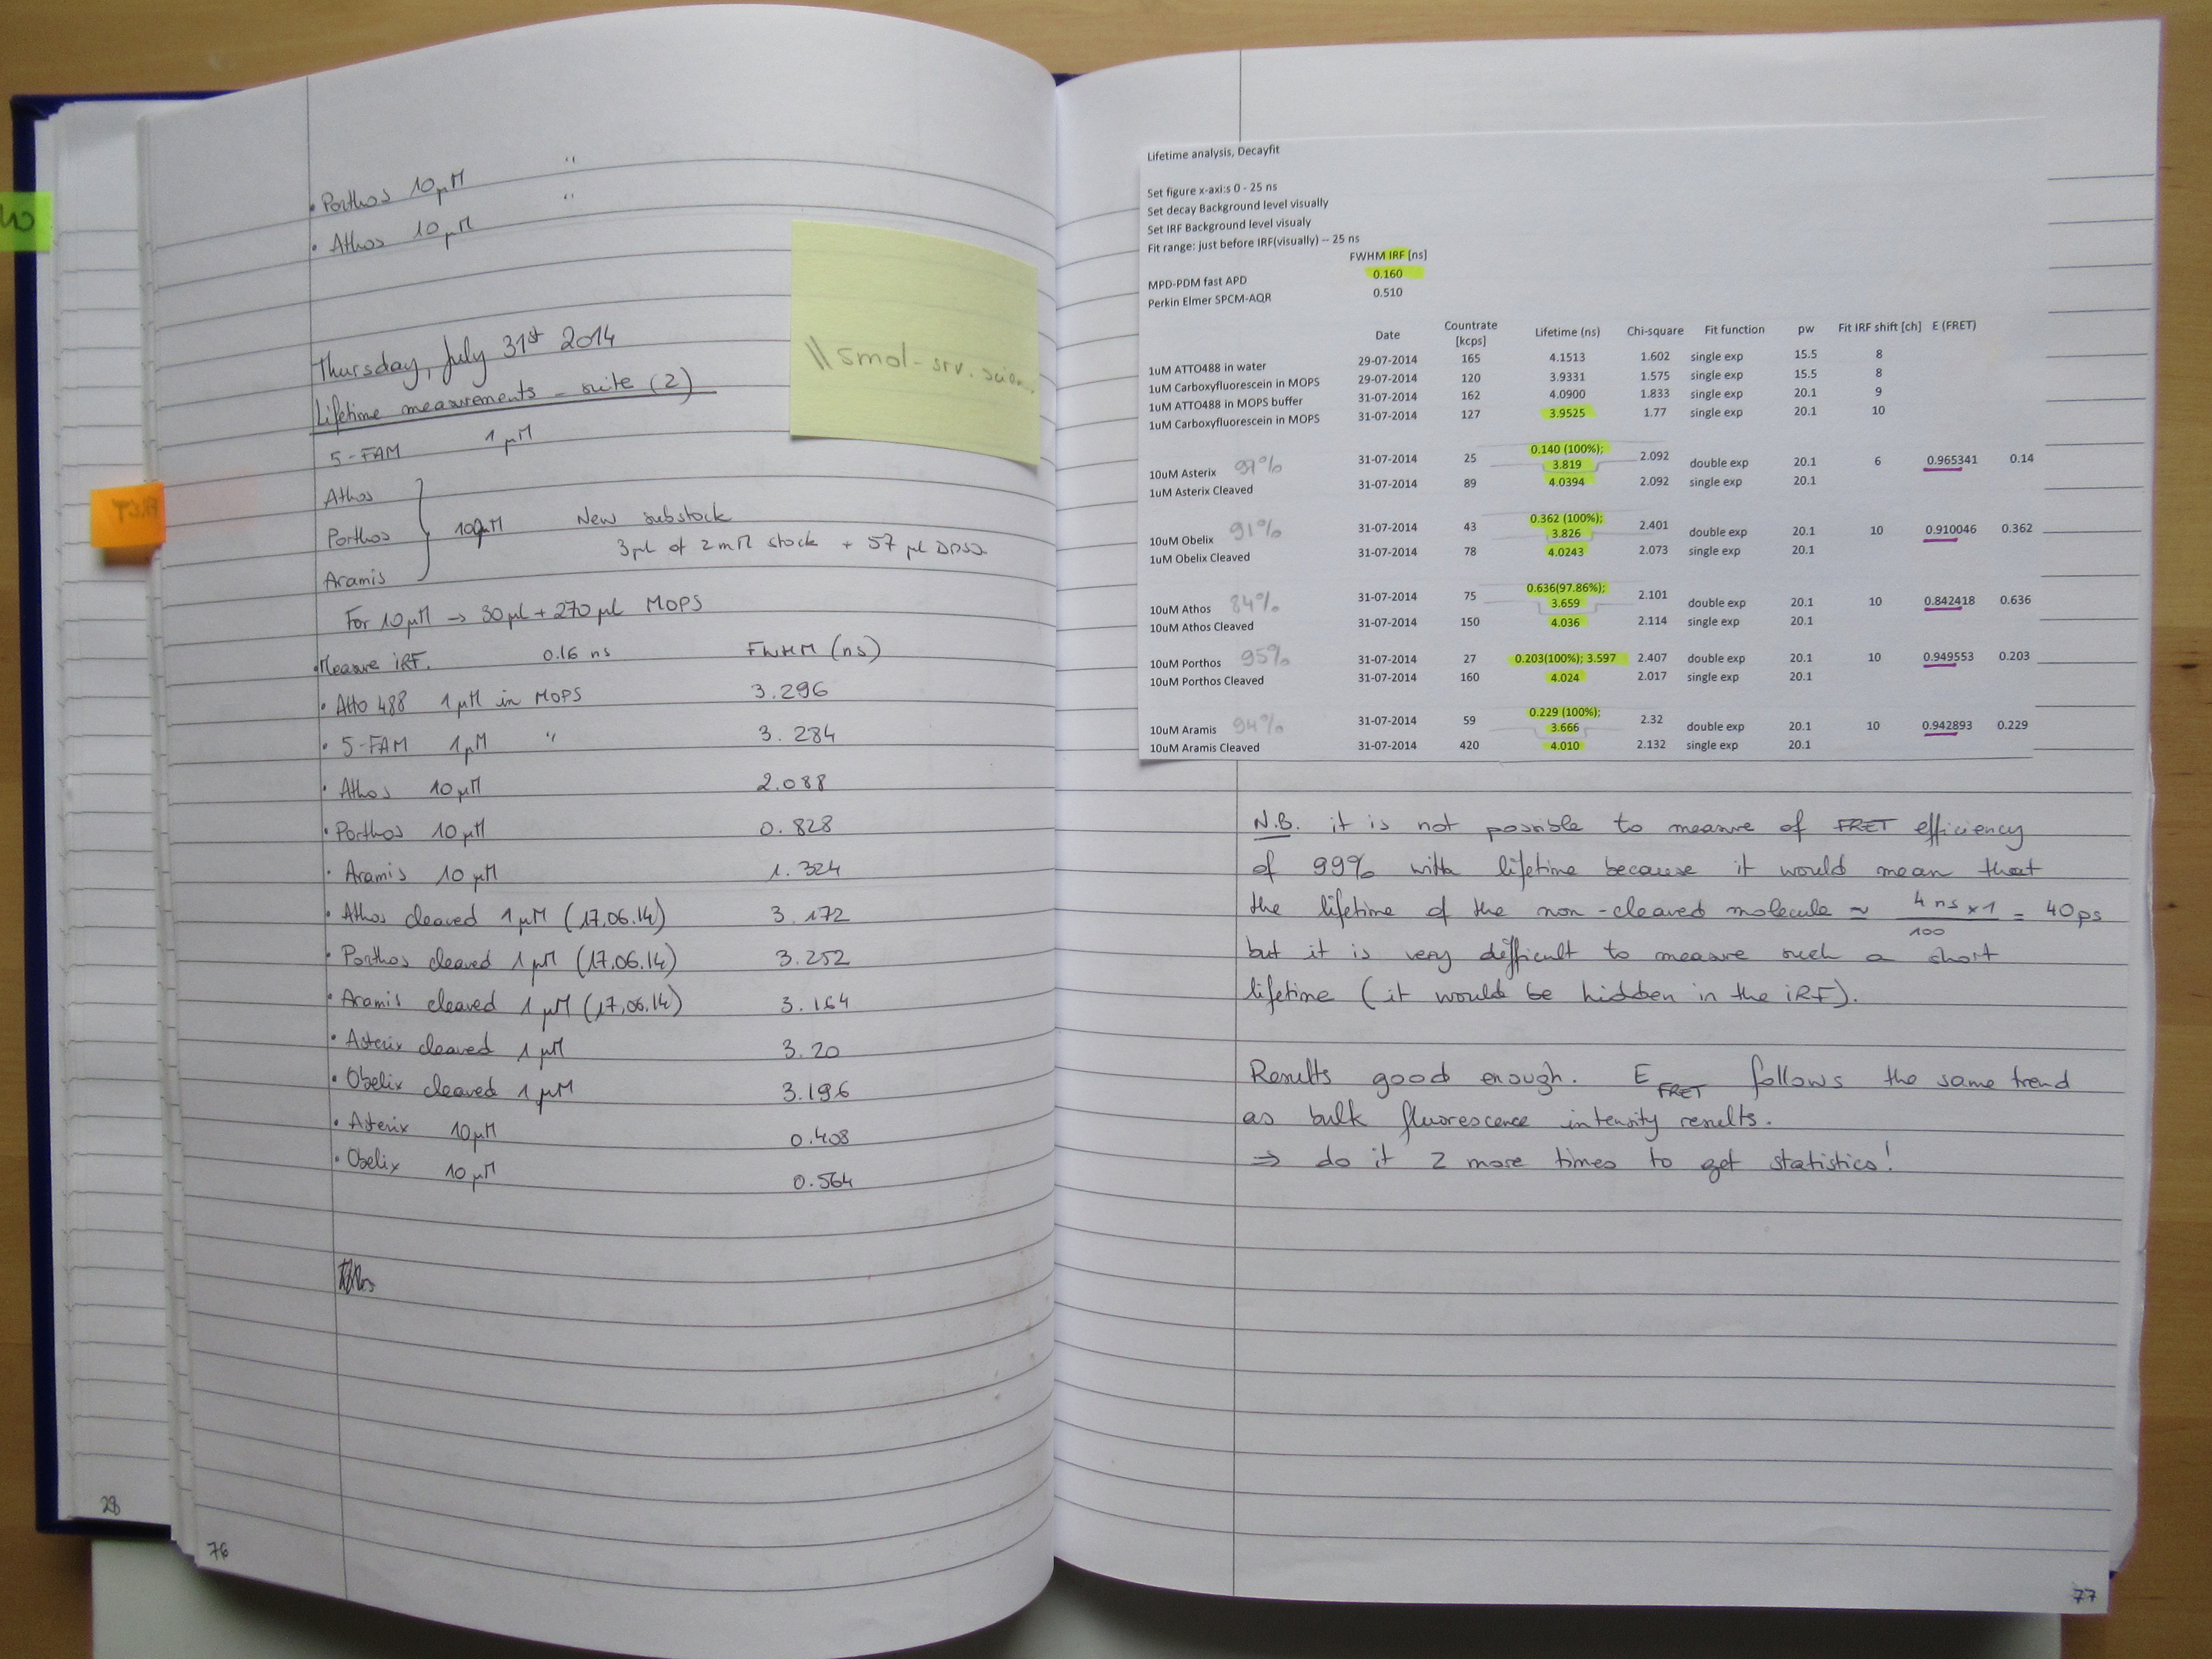 • Porthos 10 µM "
• Athos 10 µM "
Thursday, July 31st 2014
Lifetime measurements - suite (2)
5-FAM 1 µM
Athos
Porthos 100µM New substock
3µL of 2mM stock + 57 µL DMSO
Aramis
For 10µM → 30µL + 270µL MOPS
• Measure iRF. 0.16 ns FWHM (ns)
• Atto 488 1µM in MOPS 3.296
• 5-FAM 1µM " 3.284
• Athos 10µM 2.088
• Porthos 10µM 0.828
• Aramis 10µM 1.324
• Athos cleaved 1µM (17.06.14) 3.172
• Porthos cleaved 1µM (17.06.14) 3.252
• Aramis cleaved 1µM (17.06.14) 3.164
• Asterix cleaved 1µM 3.20
• Obelix cleaved 1µM 3.196
• Asterix 10µM 0.408
• Obelix 10µM 0.564
28
76
\\smol-srv.
FRET
Lifetime analysis, Decayfit
Set figure x-axi:s 0 - 25 ns
Set decay Background level visually
Set IRF Background level visualy
Fit range: just before IRF(visually) -- 25 ns
FWHM IRF [ns]
MPD-PDM fast APD 0.160
Perkin Elmer SPCM-AQR 0.510
Date Countrate [kcps] Lifetime (ns) Chi-square Fit function pw Fit IRF shift [ch] E (FRET)
1uM ATTO488 in water 29-07-2014 165 4.1513 1.602 single exp 15.5 8
1uM Carboxyfluorescein in MOPS 29-07-2014 120 3.9331 1.575 single exp 15.5 8
1uM ATTO488 in MOPS buffer 31-07-2014 162 4.0900 1.833 single exp 20.1 9
1uM Carboxyfluorescein in MOPS 31-07-2014 127 3.9525 1.77 single exp 20.1 10
10uM Asterix 97% 31-07-2014 25 0.140 (100%); 3.819 2.092 double exp 20.1 6 0.965341 0.14
1uM Asterix Cleaved 31-07-2014 89 4.0394 2.092 single exp 20.1
10uM Obelix 91% 31-07-2014 43 0.362 (100%); 3.826 2.401 double exp 20.1 10 0.910046 0.362
1uM Obelix Cleaved 31-07-2014 78 4.0243 2.073 single exp 20.1
10uM Athos 84% 31-07-2014 75 0.636(97.86%); 3.659 2.101 double exp 20.1 10 0.842418 0.636
10uM Athos Cleaved 31-07-2014 150 4.036 2.114 single exp 20.1
10uM Porthos 95% 31-07-2014 27 0.203(100%); 3.597 2.407 double exp 20.1 10 0.949553 0.203
10uM Porthos Cleaved 31-07-2014 160 4.024 2.017 single exp 20.1
10uM Aramis 94% 31-07-2014 59 0.229 (100%); 3.666 2.32 double exp 20.1 10 0.942893 0.229
10uM Aramis Cleaved 31-07-2014 420 4.010 2.132 single exp 20.1
N.B. it is not possible to measure of FRET efficiency
of 99% with lifetime because it would mean that
the lifetime of the non-cleaved molecule ≈ 4 ns x 1 / 100 = 40ps
but it is very difficult to measure such a short
lifetime (it would be hidden in the iRF).
Results good enough. E FRET follows the same trend
as bulk fluorescence intensity results.
⇒ do it 2 more times to get statistics!
77